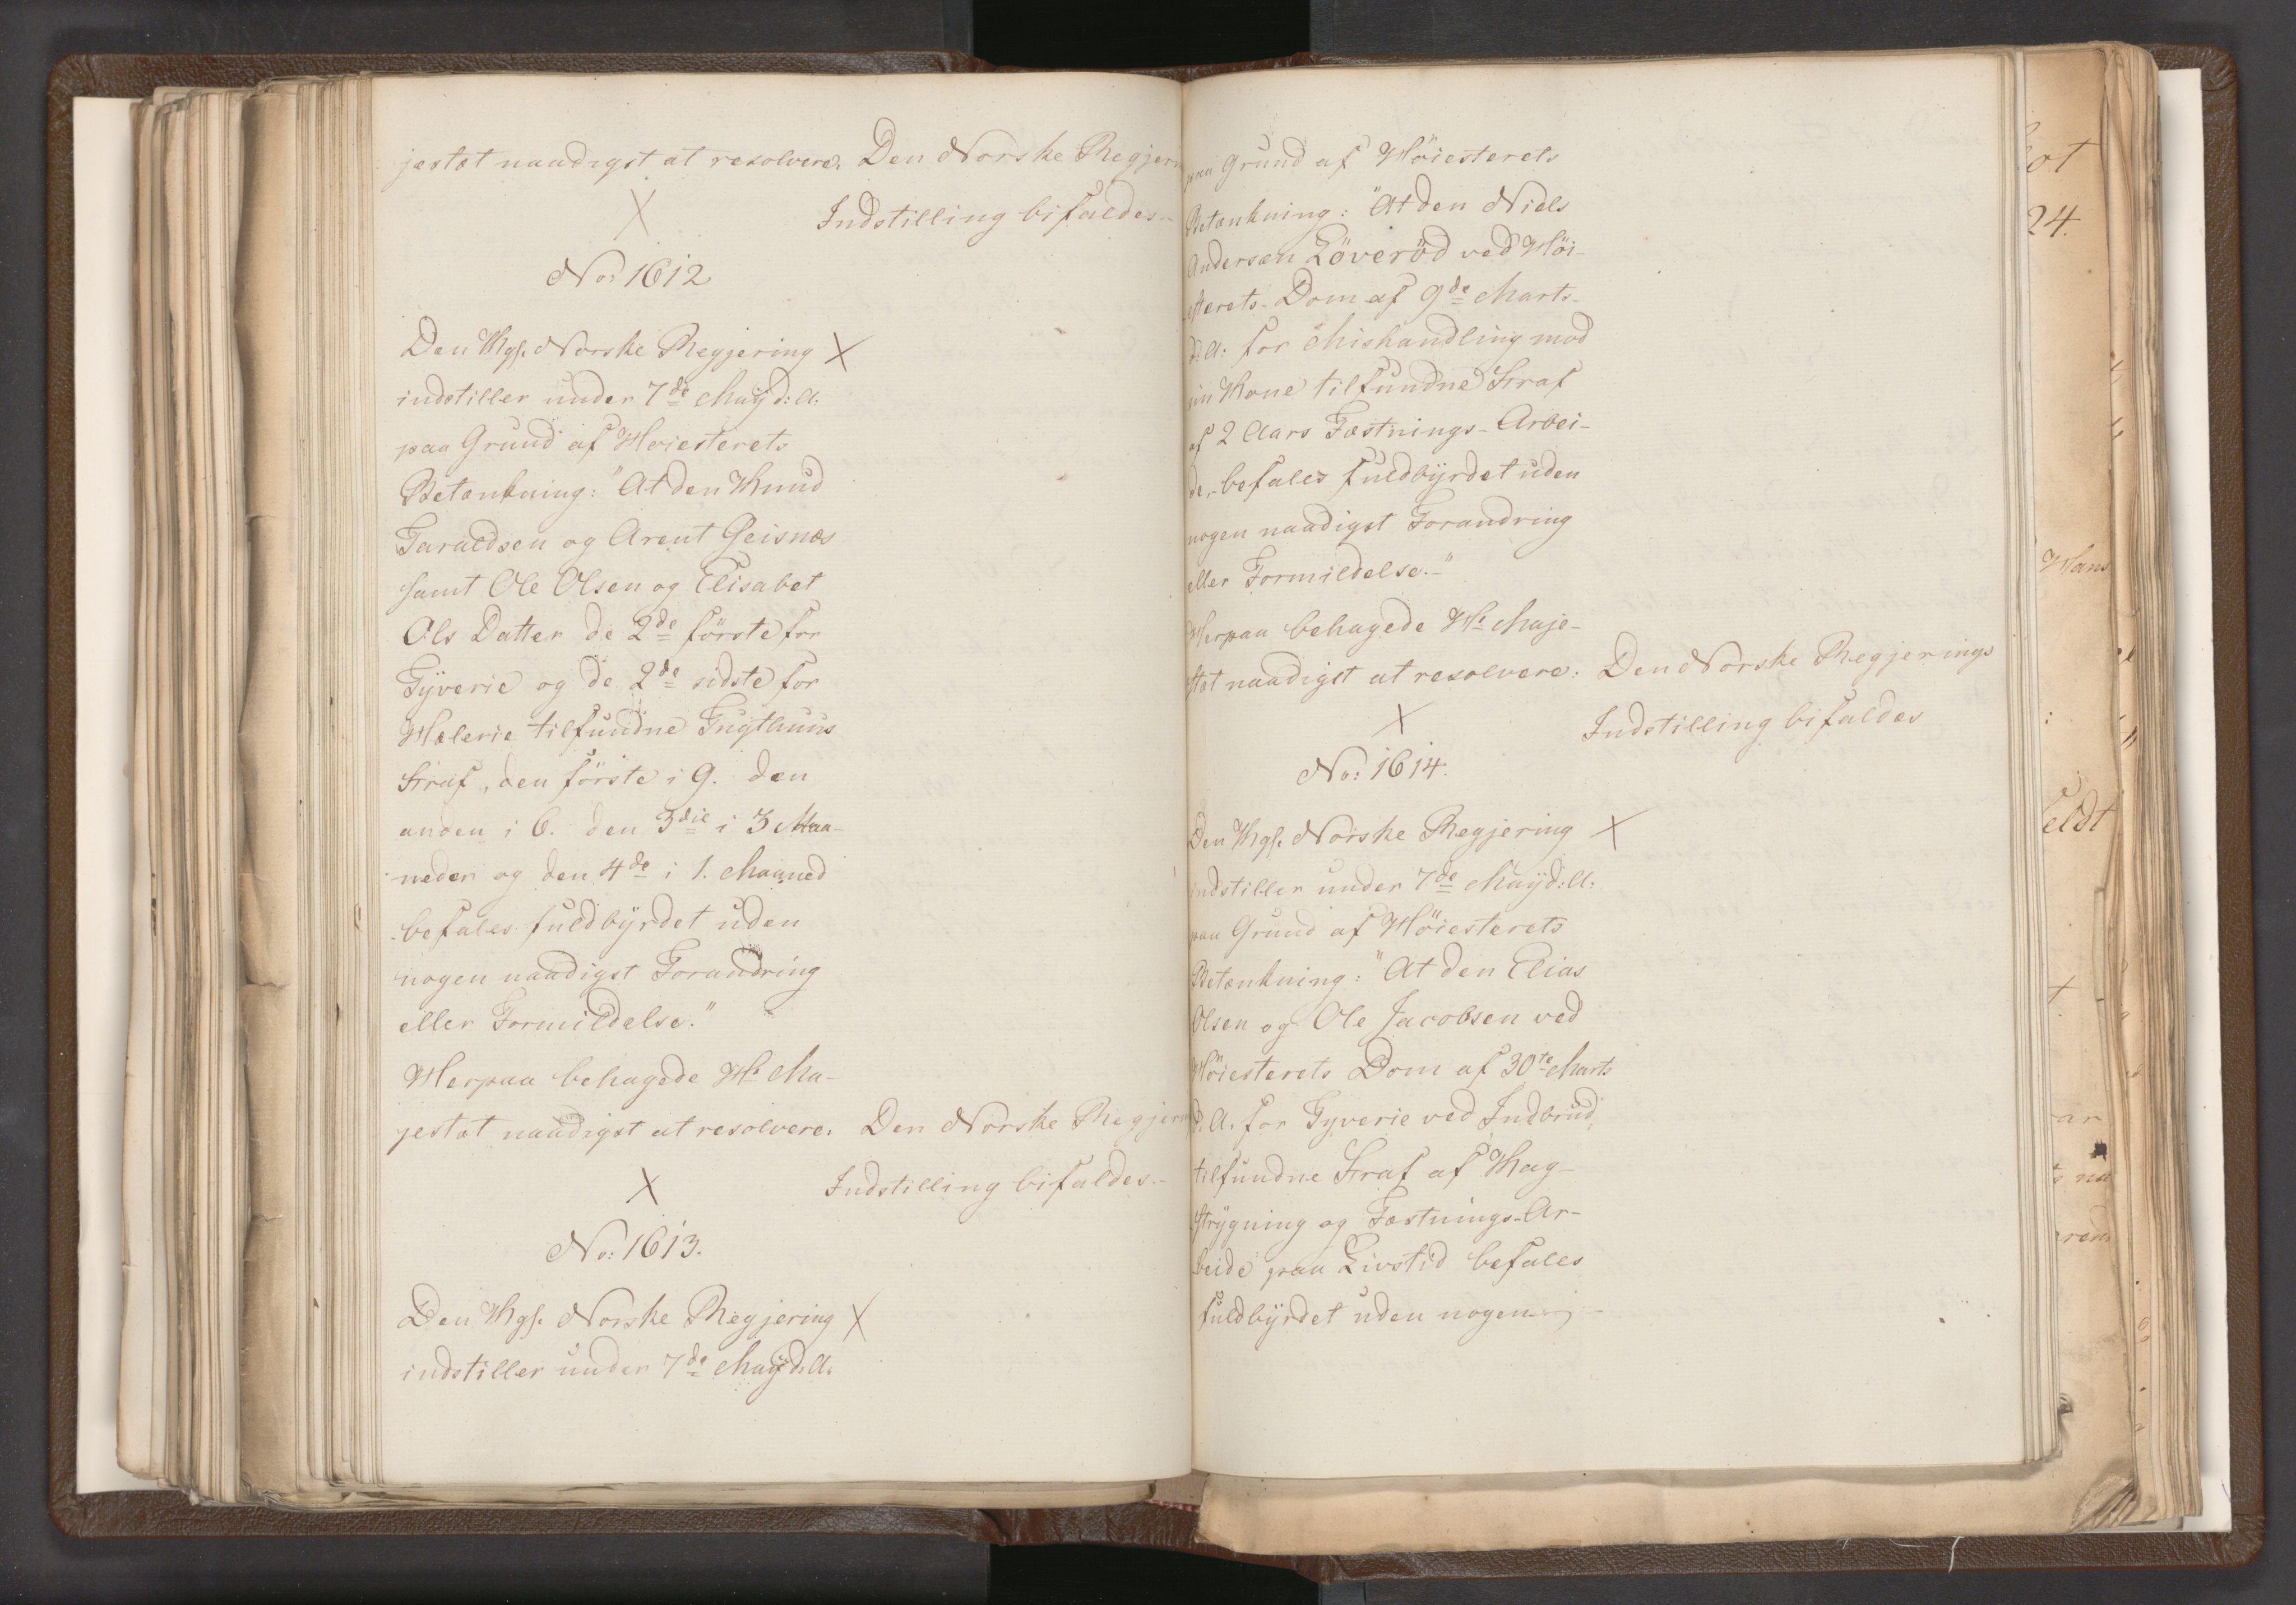 jestæt naadigst at resolvere. Den Norske Regjern
Indstilling bifaldes.-
X
No: 1612
Den Kgs. Norske Regjering X
indstiller under 7de May d: A:
paa Grund af Høiesterets
Betænkning: "At den Knud
Taraldsen og Arent Geisnæs
samt Ole Olsen og Elisabet
Ols Datter de 2de förste for
Tÿverie og de 2de sidste for
Hæleri tilfundne Tugthuus
Straf, den förste i 9. den
anden i 6. den 3die i 3 Maa-
neder og den 4de i 1. Maaned
befales fuldbÿrdet uden
nogen naadigst Forandring
eller Formildelse."
Herpaa behagede Hs. Ma-
jestæt naadigst at resolvere. Den Norske Regjern
X
Indstilling bifaldes.-
No: 1613.
Den Kgs. Norske Regjering X
indstiller under 7de May d: A:
paa Grund af Höiesterets
Betænkning: "At den Niels
Andersen Löveröd ved Höi-
esterets-Dom af 9de Marts-
d: A: for Mishandling mod
sin Kone tilfundne Straf
af 2 Aars Fæstnings-Arbei-
de,- befales fuldbÿrdet uden
nogen naadigst Forandring
eller Formildelse.-"
Herpaa behagede Hs Maje-
stæt naadigst at resolvere: Den Norske Regjerings
X
Indstilling bifaldes
No: 1614.
Den Kgs. Norske Regjering X
indstiller under 7de May d: A:
paa Grund af Höiesterets
Betænkning: "At den Elias
Olsen og Ole Jacobsen ved
Höiesterets Dom af 30te Marts
d. A. for Tyverie ved Indbrud
tilfundne Straf af Kag-
strÿgning og Fæstnings-Ar-
beide paa Livstid befales
fuldbÿrdet uden nogen
ot
24.
Hans
eldt
ar
na